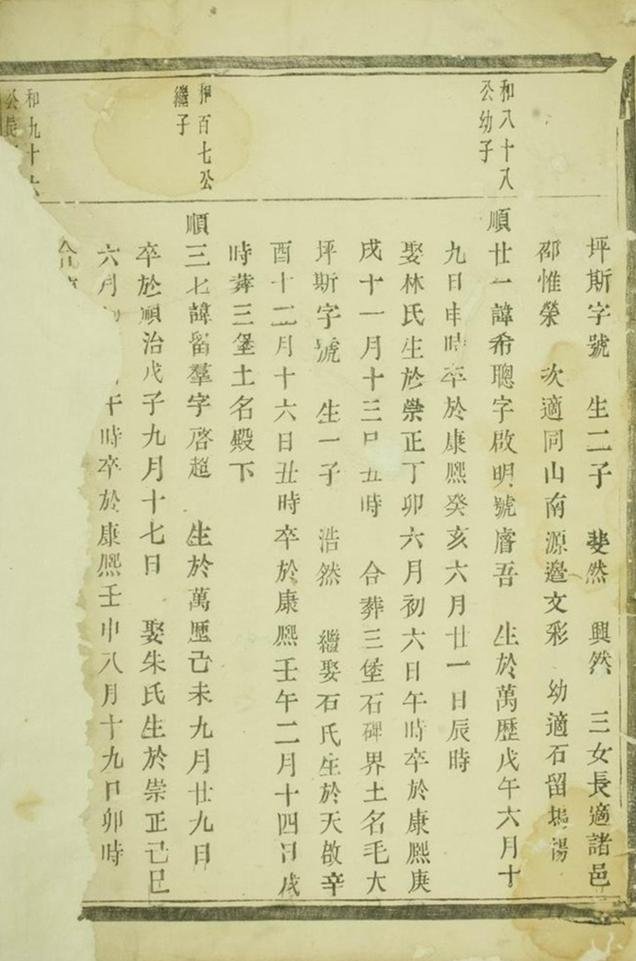 坪斯字號 生二子 斐然 興然 三女長適諸邑
邵惟榮 次適同山南源邉文彩 幼適石留塢湯
和八十八
公幼子
順廿一諱希聰字啟明號睿吾 生於萬歷戊午六月十
九日申時卒於康熙癸亥六月廿一日辰時
娶林氏生於崇正丁卯六月初六日午時卒於康熙庚
戌十一月十三日丑時 合葬三堡石碑界土名毛大
坪斯字號 生一子 浩然 繼娶石氏生於天啟辛
酉十二月十六日丑時卒於康熙壬午二月十四日戌
時葬三堡土名殿下
百七公
繼子
順三七諱留羣字啓超 生於萬歷己未九月廿九日
卒於順治戊子九月十七日 娶朱氏生於崇正己巳
六月 午時卒於康熙壬申八月十九日卯時
和九十六
公長
合